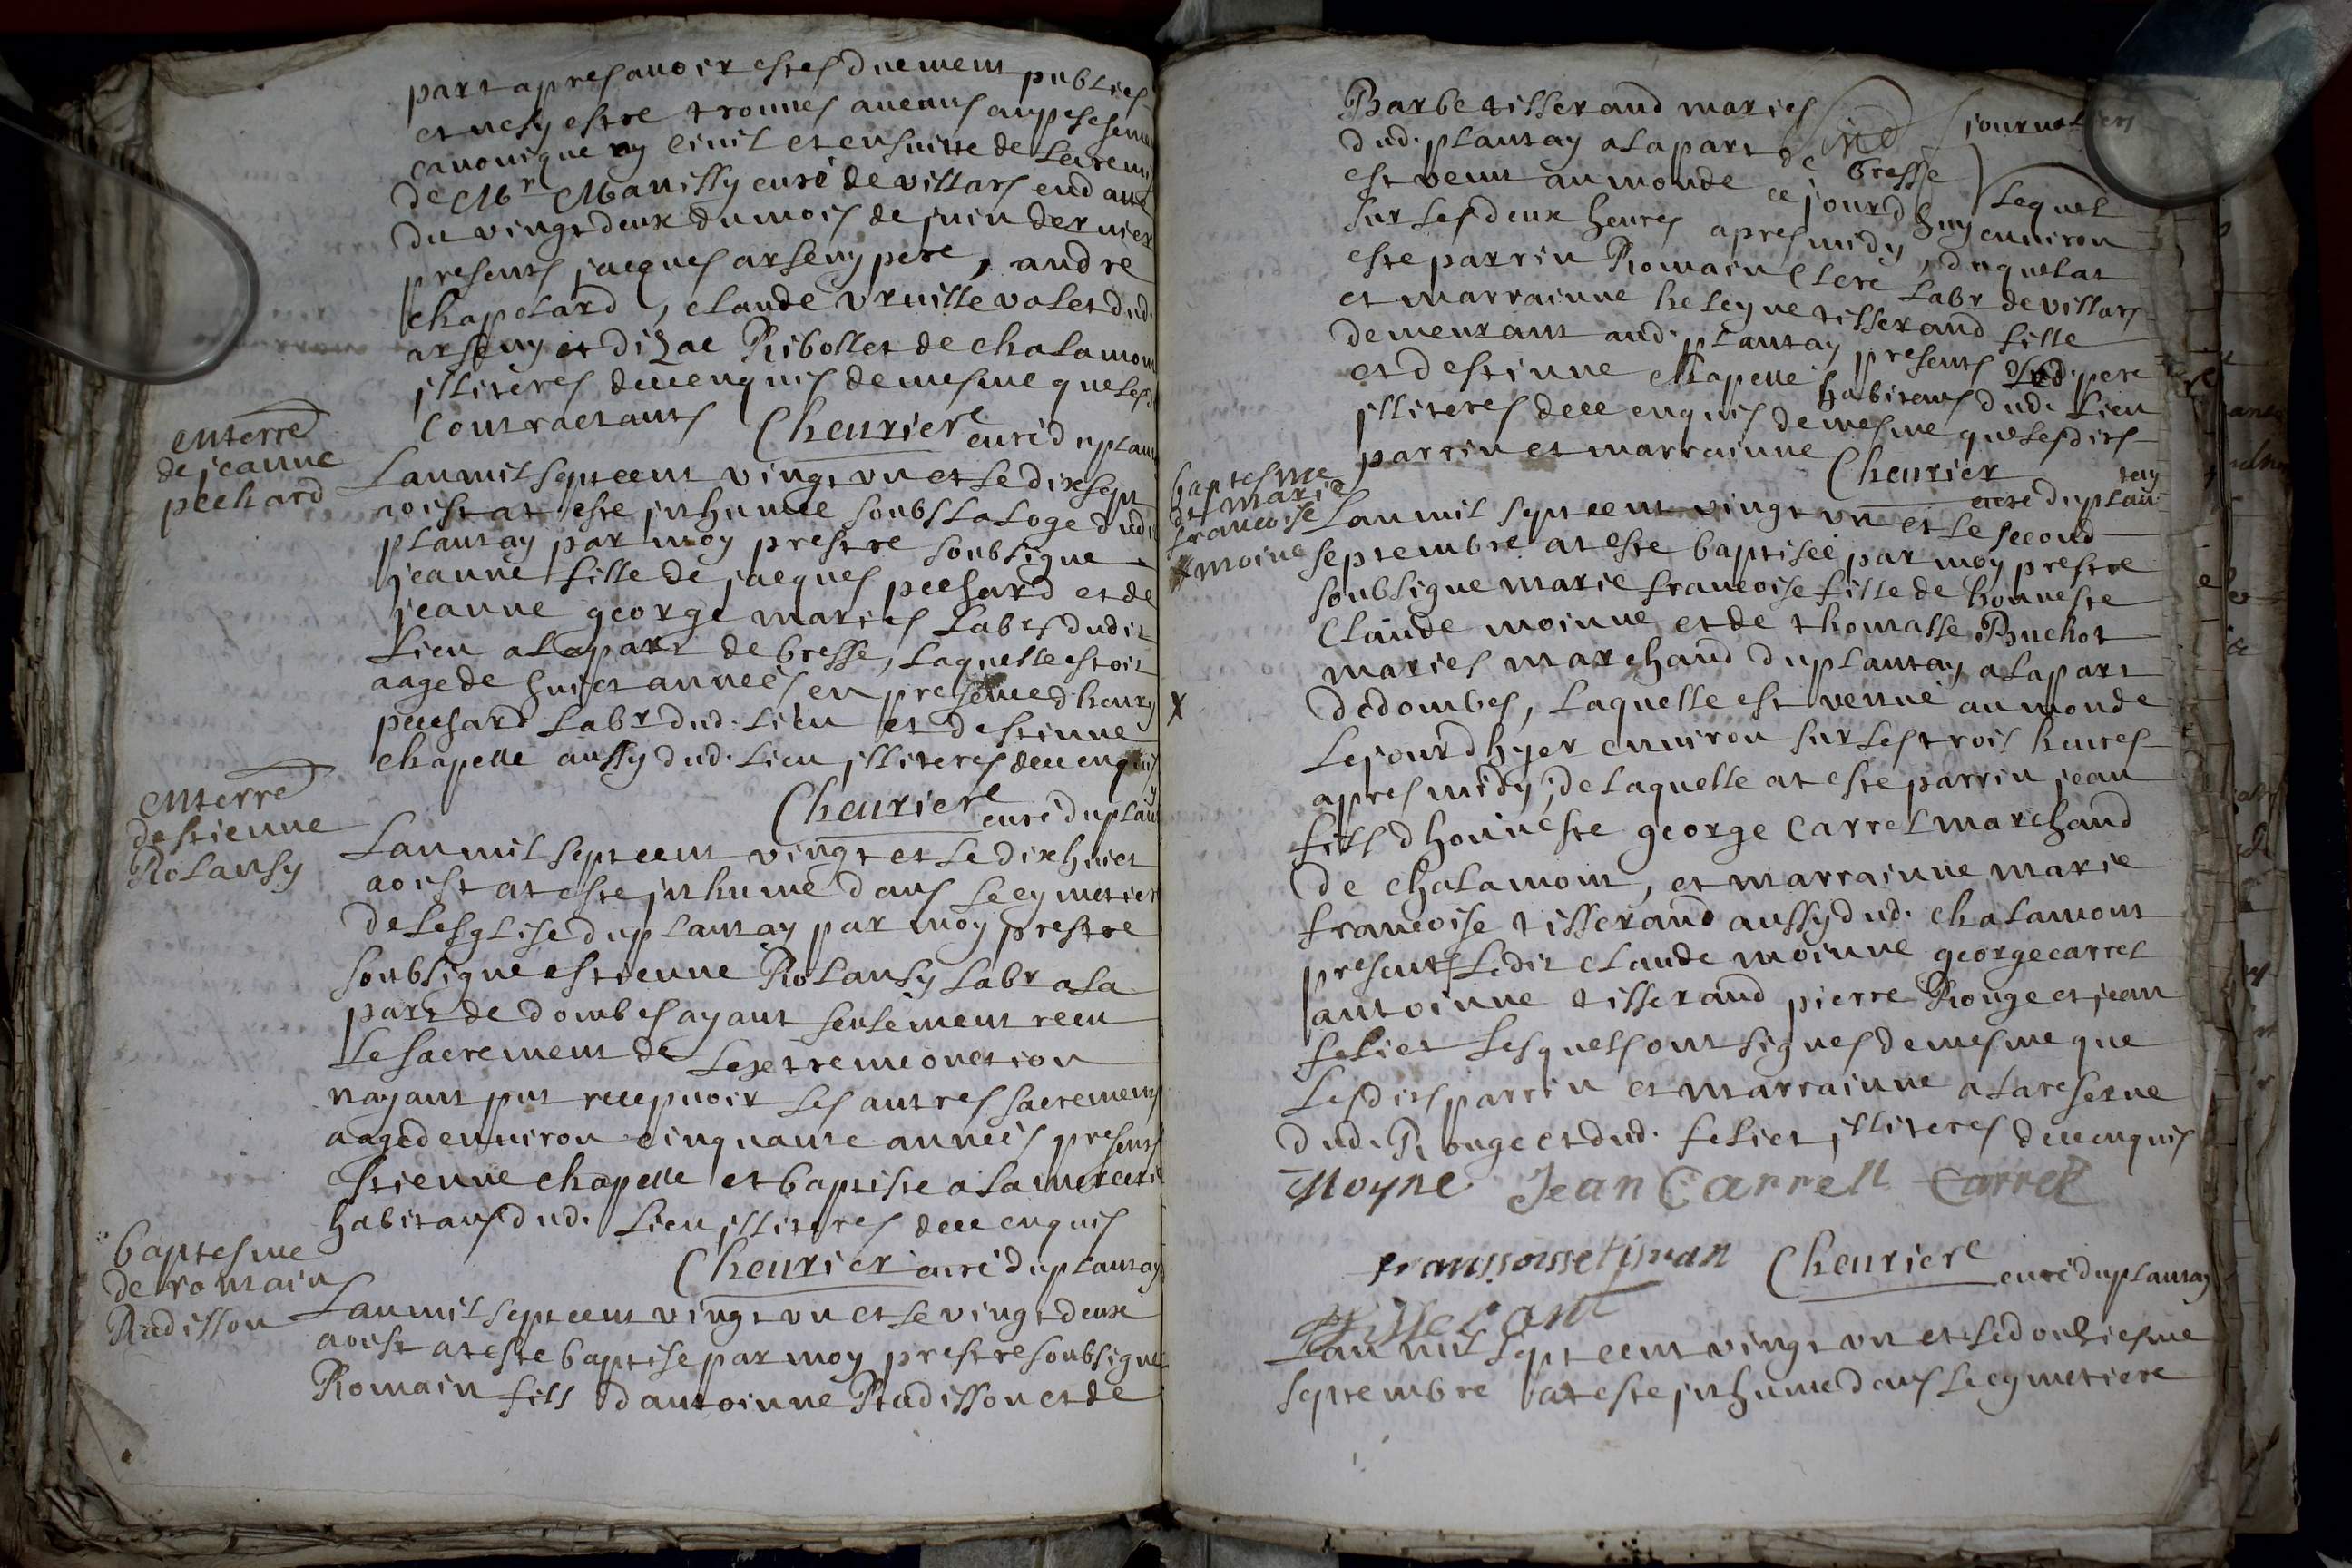 part apres avoir estes duement publiees
et nesy estre trouves aucuns
canonique ny civil et ensuitte de
de Mr Manissy curé de villars end
du vingt deux du mois de juin dernier
presents jacques arseny pere, andre
chapelard, claude vruille valet dud.
arseny et dizac Ribollet de chalamon
illiteres deuenquis de mesme que lesd
Contractants Cheurier curé duplan
enterré
de jeanne
pechard
Lan mil sept cent vingt vn et le dix sept
aoust at este inhumee soubs la loge dud.
plantay par moy prestre soubsigne
jeanne fille de jacques pechard et de
jeanne george maries Labrs dudit
Lieu a la part de bresse, laquelle estoit
aage de huict années en presence d henry
pechard Labr dud. Lieu et destienne
chapelle aussy dud. Lieu illiteres deuenquis
Cheurier curé duplan
enterré
destienne
Rolansy
Lan mil sept cent vingt et le dix huict
aoust at este inhumé dans le cymetier
de lesglise duplantay par moy prestre
soubsigne estienne Rolansy Labr a la
part de dombes ayant seulement receu
le sacrement de Lextremeonction
nayant put recepuoir les autres sacrements
aagé denuiron cinquante années presents
Estienne chapelle et baptiste a la
habitans dud. Lieu illiteres deuenquis
Cheurier curé duplantay
baptesme
de romain
Radisson
Lan mil sept cent vingt vn et le vingt deux
aoust at este baptisé par moy prestre soubsigne
Romain fills dantoinne Radisson et de
Barbe tisserand maries journaliers
dud. plantay a la part de bresse lequel
est venu au monde ce jourd huy enuiron
sur les deux heures apres midy, duquel at
este parrin Romain Clerc Labr de villars
et marrainne heleyne tisserand fille
demeurant aud. plantay presents Led. pere
et destinne Chapelle habitans dud. Lieu
illiteres deuenquis de mesme que lesdits
parrin et marrainne Cheurier
curé duplantay
baptesme
de marie
francoise
moine
Lan mil sept cent vingt vn et le second
septembre at este baptisée par moy prestre
soubsigne marie francoise fille de honneste
Claude moinne et de thomasse Buchot
maries marchand duplantay a la part
dedombes, Laquelle est venue au monde
Le jourd hyer enuiron sur les trois heures
apres midy, de laquelle at este parrin jean
fills dhonneste george Carrel marchand
de chalamont, et marrainne marie
francoise tisserand aussy dud. chalamont
presents ledit claude moinne george carrel
antoinne tisserand pierre Rouge et jean
feliet Lesquels ont signes de mesme que
Lesdits parrin et marrainne a la reserue
dud. Rouge et dud. feliet illiteres deuenquis
Moyne Jean Carrell Carrel
Cheurier curé duplantay
Lan mil sept cent vingt vn et le douziesme
septembre at este inhume dans le cymetiere